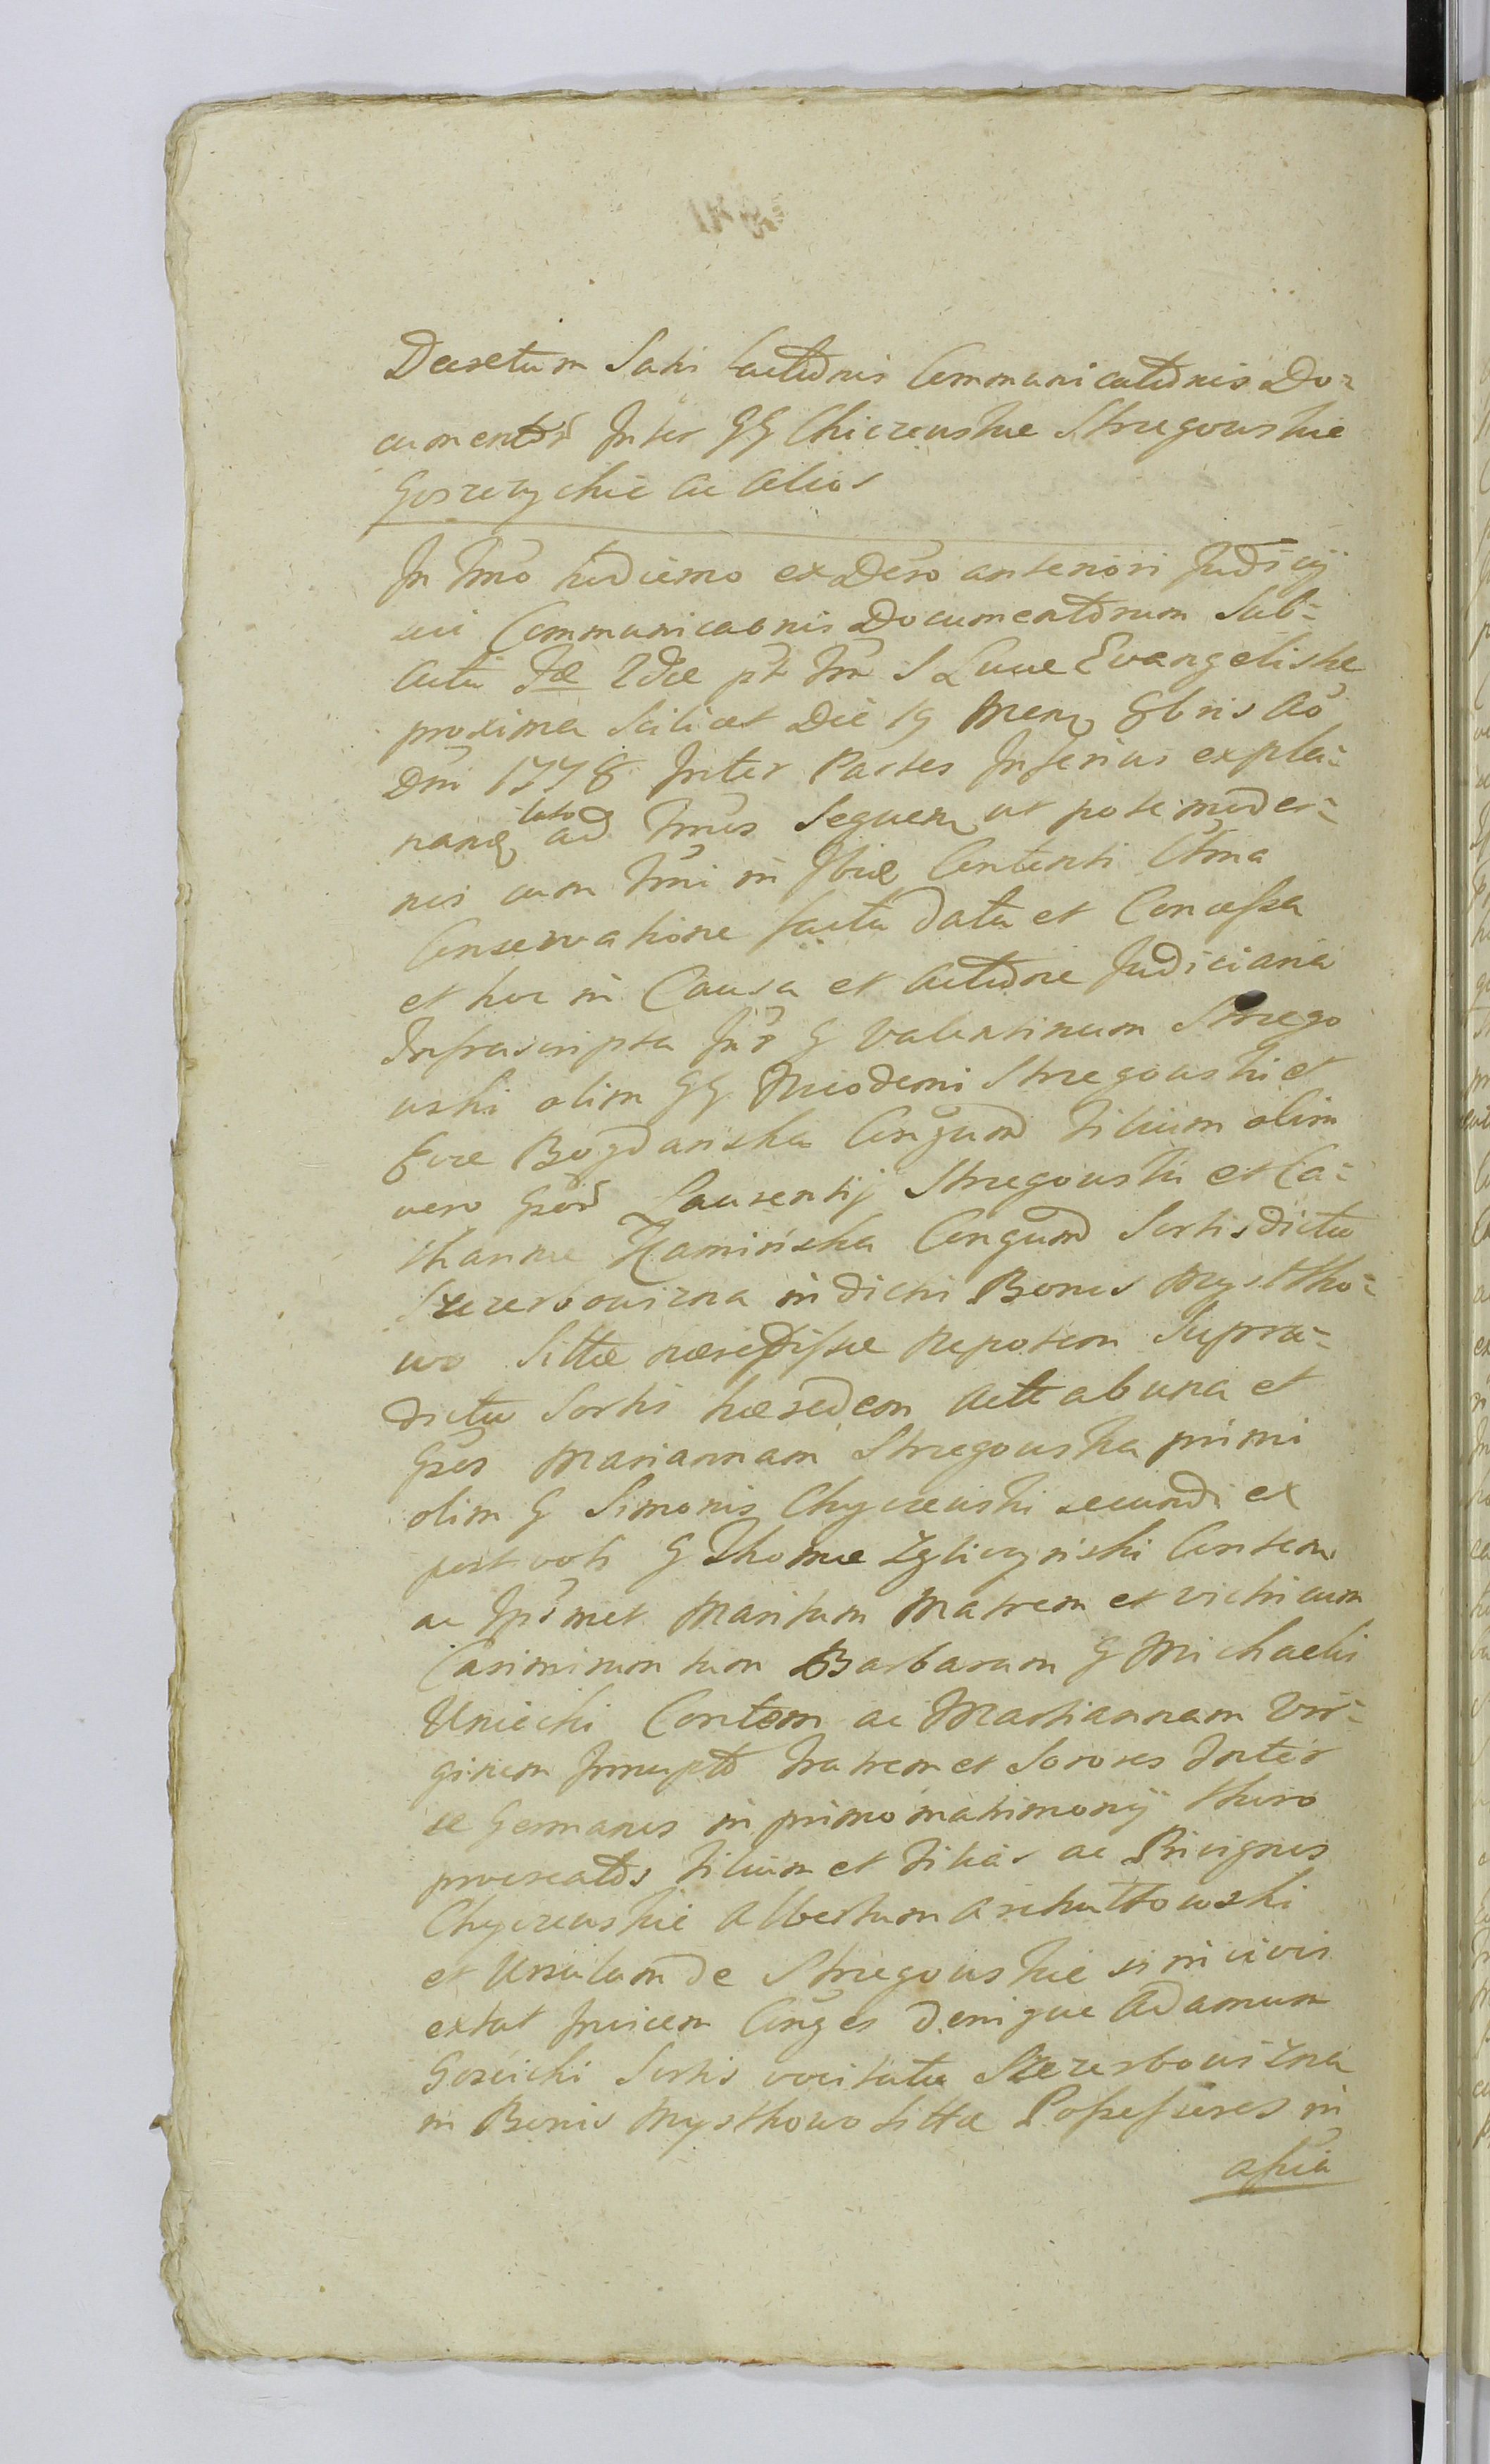 Decretum Satis factionis Communicationis Do-
cumentor Inter GG Chiczewskie Strzegowskie
Gorzeychie ac alios
In Tmo hodierno ex Decro anteriori Judicij
sui Communicaonis Documentorum Sub
Actu Fæ 2dæ pt Fm S Lucæ Evangelistæ
proxima Scilicet Die 19 Mens 8bris Ao
Dni 1778 Inter Partes Inferius expla-
nand lato ad Tmos Sequen ut pote moder-
nis cum Tmi in Ibid Contenti
Conservatione facta data et Concessa
et hoc in Causa et Actione Judiciaria
Infrascripta Intr G Valentinum Strzego
wski olim GG Nicodemi Strzegowski et
Evæ Bogdanska Conjgum filium olim
vero Gsor Laurentij Strzegowski et Ca-
tharinæ Kaminska Conjgum Sortis dictæ
Szczerbowizna in dictis Bonis Mystko-
wo Sittæ hæredissæ Nepotem Supra-
dictæ Sortis hæredem Act ab una et
Gsos Mariannam Strzegowska primi
olim G Simonis Chyczewski secundi ex
post voti G Thomæ Zgliczynski Contem
ac Ipsmet Maritum Matrem et vitricum
Casimirum tum Barbaram G Michaelis
Uniechi Contem ac Marhannam Vir-
ginem Innupt fratrem et Sorores Inter
se Germanos in primo matrimonij thoro
procreatos filium et filias ac Privignos
Chyczewskie Albertum Archuttowski
et Ursulam de Strzegowskie
extat Invicem Conjges denique Adamum
Gozdichi Sortis vocitatæ Szczerbowizna
in Bonis Mysthowo Sittæ Possessores in
assia